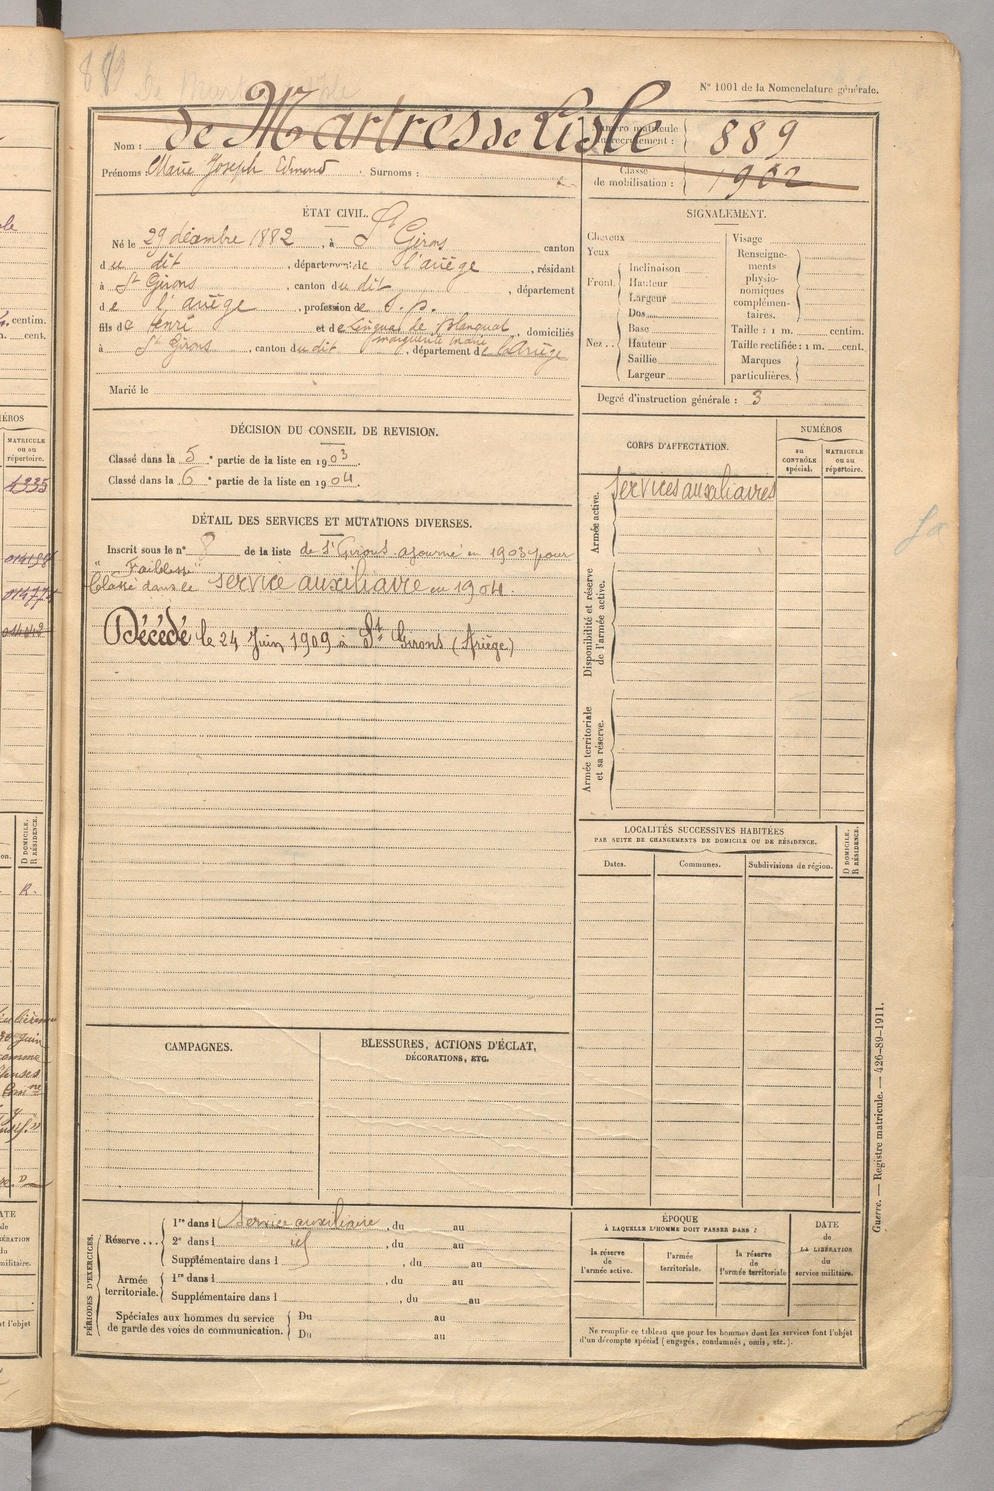 889
N° 1001 de la Nomenclature générale.
Nom : de Martres de Lisle
Prénoms : Marie Joseph Edmond . Surnoms :
Numéro matricule du recrutement : 889
Classe de mobilisation : 1902
ÉTAT CIVIL.
Né le 29 décembre 1882, à St Girons canton
du dit, département de l'ariège, résidant
à St Girons, canton du dit, département
de l'ariège, profession de S. p.
fils de Henri et de Lingua de Blanquat, domiciliés
marguerite marie
à St Girons, canton du dit, département de l'Ariège
Marié le
DÉCISION DU CONSEIL DE REVISION.
Classé dans la 5e partie de la liste en 1903.
Classé dans la 6e partie de la liste en 1904.
DÉTAIL DES SERVICES ET MUTATIONS DIVERSES.
Inscrit sous le n° 8 de la liste de St Girons. ajourné en 1903 pour
"Faiblesse"
Classé dans le service auxiliaire en 1904.
Décédé le 24 Juin 1909 à St Girons (Ariège)
CAMPAGNES.
BLESSURES, ACTIONS D'ÉCLAT,
DÉCORATIONS, ETC.
PÉRIODES D'EXERCICES.
Réserve ... 1re dans l Service auxiliaire, du au
2e dans l id, du au
Supplémentaire dans l , du au
Armée territoriale. 1re dans l , du au
Supplémentaire dans l , du au
Spéciales aux hommes du service
de garde des voies de communication.
Du au
Du au
SIGNALEMENT.
Cheveux
Yeux
Front. Inclinaison
Hauteur
Largeur
Nez .. Dos
Base
Hauteur
Saillie
Largeur
Visage
Renseignements
physionomiques
complémentaires.
Taille : 1 m. centim.
Taille rectifiée : 1 m. cent.
Marques
particulières.
Degré d'instruction générale : 3
CORPS D'AFFECTATION.
NUMÉROS
au CONTRÔLE spécial.
MATRICULE ou au répertoire.
Armée active.
Services auxiliaires
Disponibilité et réserve
de l'armée active.
Armée territoriale
et sa réserve.
LOCALITÉS SUCCESSIVES HABITÉES
PAR SUITE DE CHANGEMENTS DE DOMICILE OU DE RÉSIDENCE.
Dates.
Communes.
Subdivisions de région.
D DOMICILE.
R RÉSIDENCE.
ÉPOQUE
À LAQUELLE L'HOMME DOIT PASSER DANS :
la réserve de l'armée active.
l'armée territoriale.
la réserve de l'armée territoriale
DATE
de
LA LIBÉRATION
du
service militaire.
Ne remplir ce tableau que pour les hommes dont les services font l'objet
d'un décompte spécial (engagés, condamnés, omis, etc.).
Guerre. — Registre matricule. — 426-89-1911.
centim.
cent.
MATRICULE
ou au
répertoire.
4335
D DOMICILE.
R RÉSIDENCE.
R.